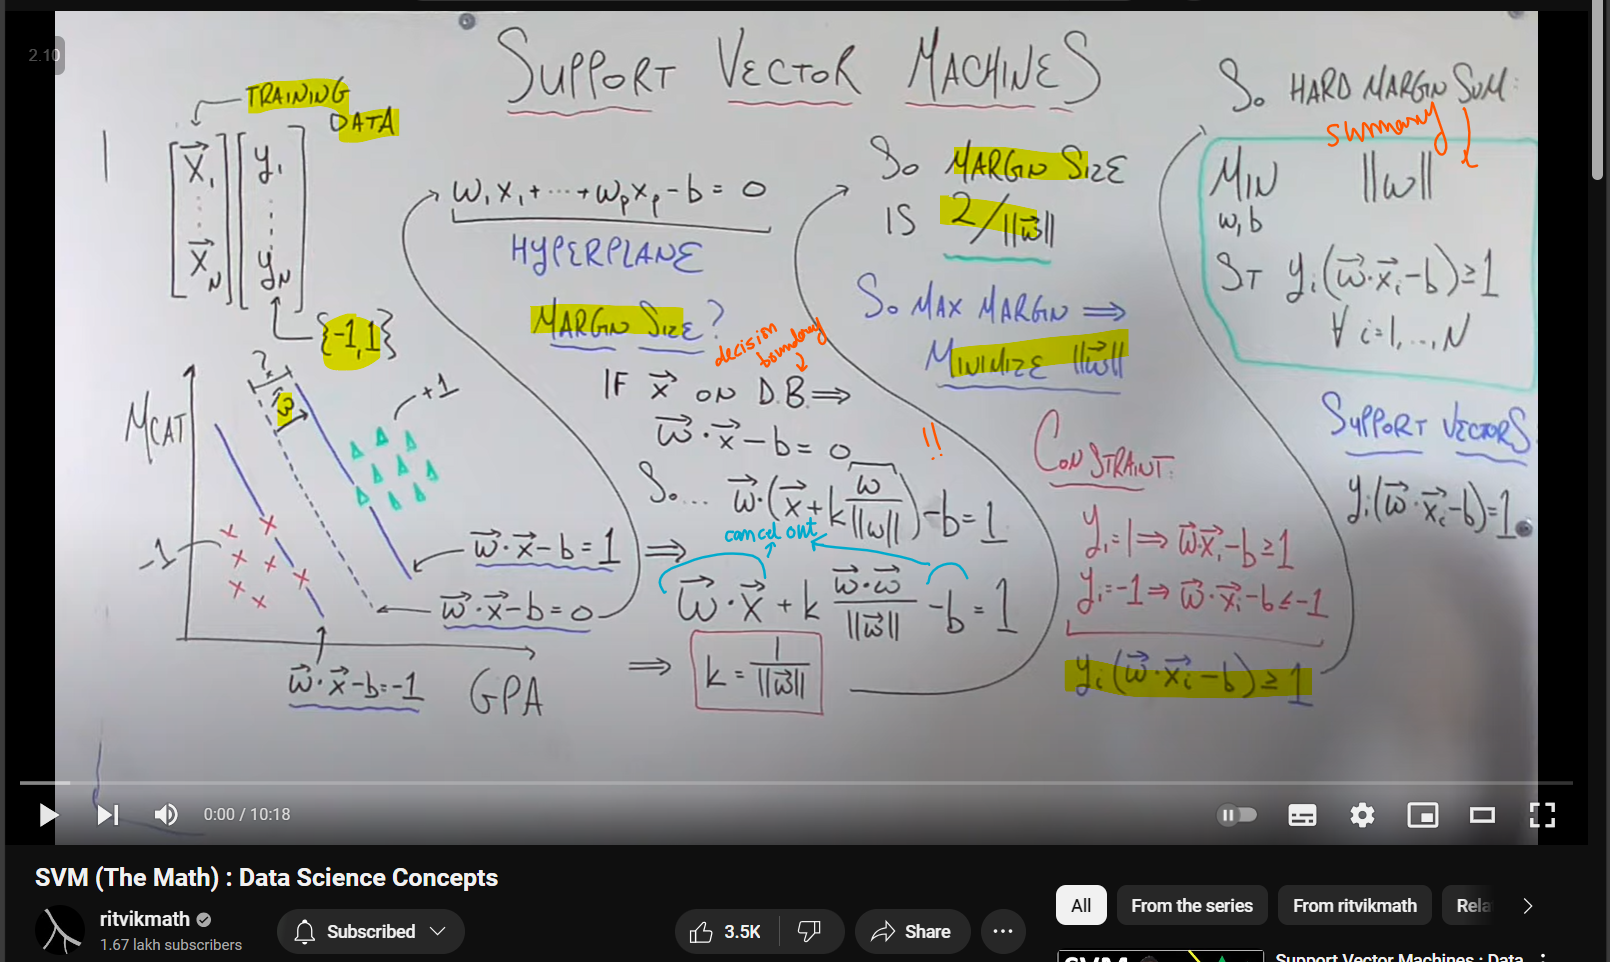 2.10
SUPPORT VECTOR MACHINES
TRAINING
DATA
x⃗₁ y₁
x⃗_N y_N
{-1,1}
?
w⃗
MCAT
+1
-1
w⃗·x⃗-b=1
w⃗·x⃗-b=0
w⃗·x⃗-b=-1
GPA
w₁x₁+···+wₚxₚ-b=0
HYPERPLANE
MARGIN SIZE?
decision
boundary
IF x⃗ ON D.B. ⇒
w⃗·x⃗-b=0
SO... w⃗·(x⃗+k w⃗/||w⃗||)-b=1
cancel out
⇒
w⃗·x⃗+k w⃗·w⃗/||w⃗|| -b=1
⇒ k = 1/||w⃗||
SO MARGIN SIZE
IS 2/||w⃗||
SO MAX MARGIN ⇒
MINIMIZE ||w⃗||
!!
CONSTRAINT:
yᵢ=1 ⇒ w⃗·x⃗ᵢ-b≥1
yᵢ=-1 ⇒ w⃗·x⃗ᵢ-b≤-1
yᵢ(w⃗·x⃗ᵢ-b)≥1
SO HARD MARGIN SVM:
summary
MIN ||w||
w,b
ST yᵢ(w⃗·x⃗ᵢ-b)≥1
∀ i=1,...,N
SUPPORT VECTORS
yᵢ(w⃗·x⃗ᵢ-b)=1
0:00 / 10:18
SVM (The Math) : Data Science Concepts
ritvikmath
1.67 lakh subscribers
Subscribed
3.5K
Share
All
From the series
From ritvikmath
Rela
SVM
Support Vector Machines : Data